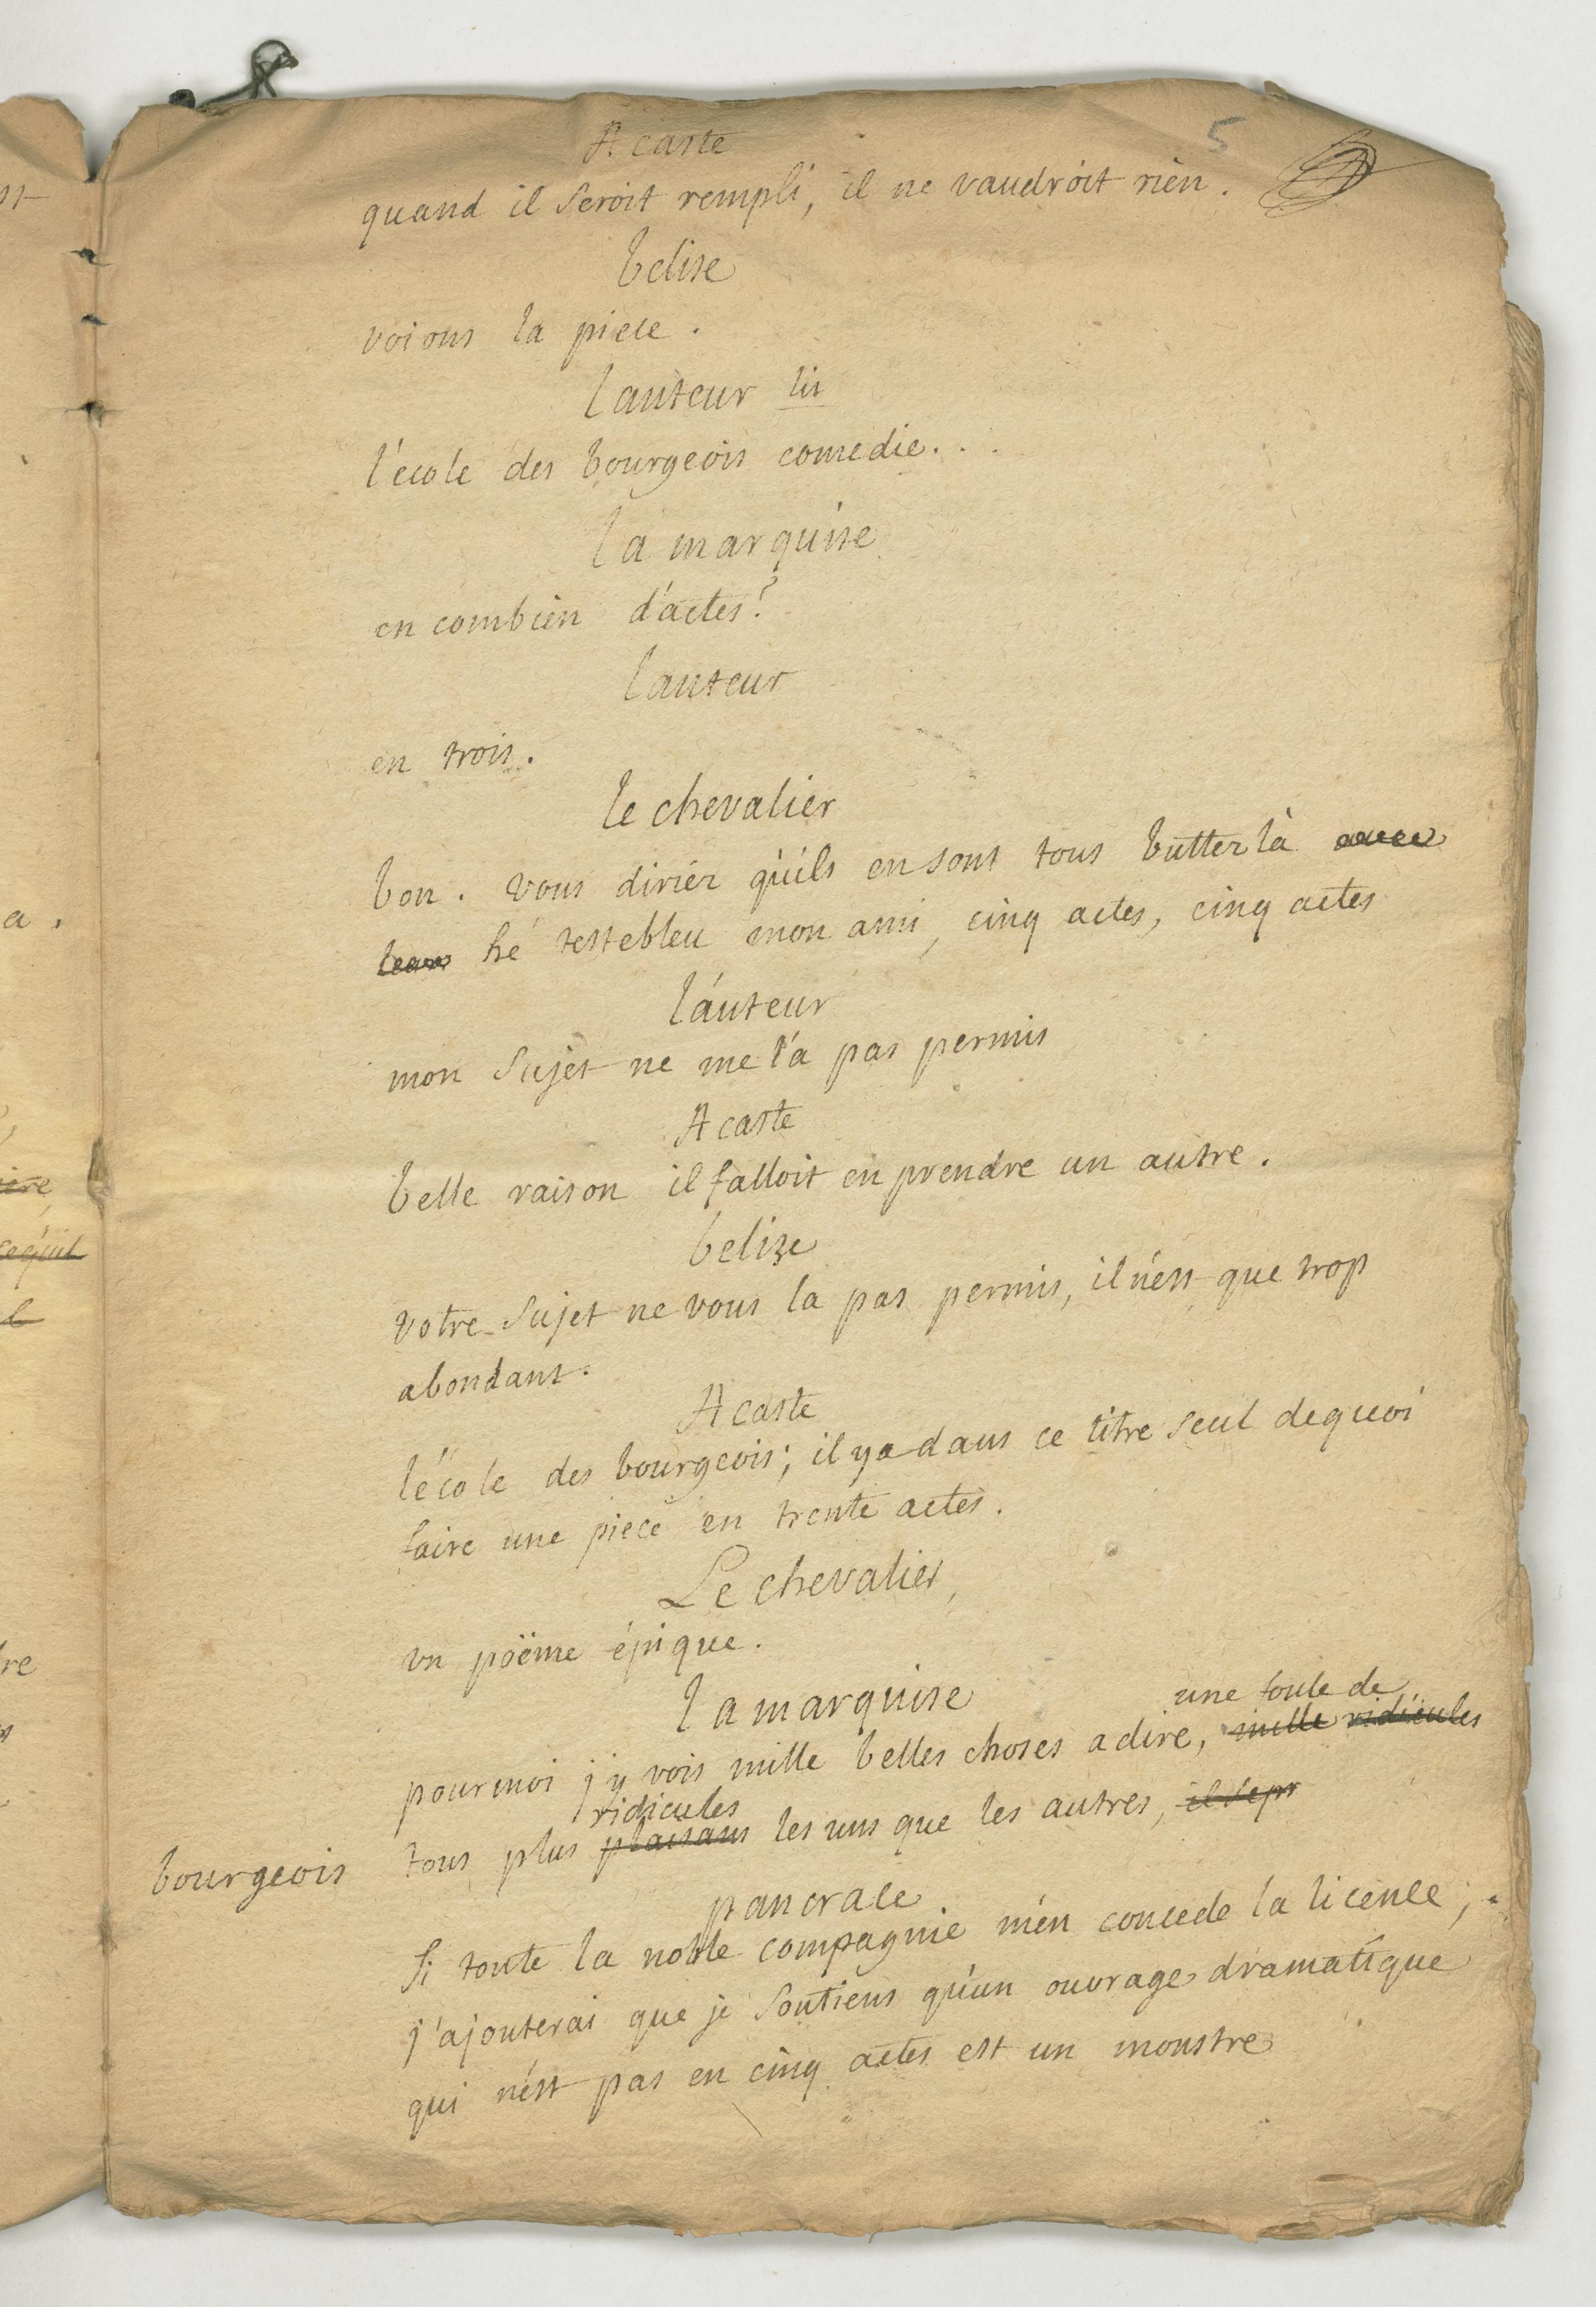 5
Acaste
quand il seroit rempli, il ne vaudroit rien.
belise
voions la piece.
lauteur lit
l'ecole des bourgeois comedie...
la marquise
en combien d'actes?
lauteur
en trois.
le chevalier
bon. vous diriéz quils en sont tous butter là avec
leurs hé testebleu mon ami, cinq actes, cinq actes
láuteur
mon sujet ne me l'a pas permis
Acaste
belle raison il falloit en prendre un autre.
belize
votre sujet ne vous la pas permis, il n'est que trop
abondant.
Acaste
l'école des bourgeois; il y a dans ce titre seul dequoi
faire une piece en trente actes.
Le chevalier
un poëme épique.
la marquise
une foule de
pour moi j'y vois mille belles choses a dire, mille ridicules
ridicules
bourgeois tous plus plaisans les uns que les autres, il s'epr
pancrace
si toute la noble compagnie m'en concede la licence;
j'ajouterai que je soutiens qu'un ouvrage dramatique
qui n'est pas en cinq actes est un monstre